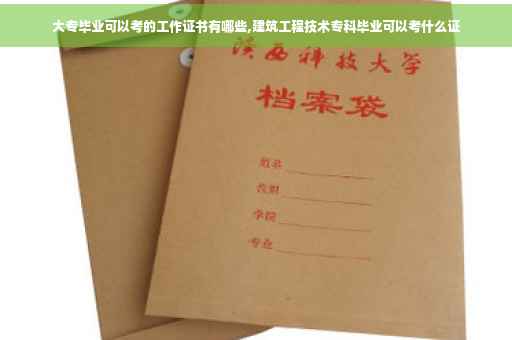 大专毕业可以考的工作证书有哪些,建筑工程技术专科毕业可以考什么证
陕西科技大学
档案袋
姓名
学院
专业